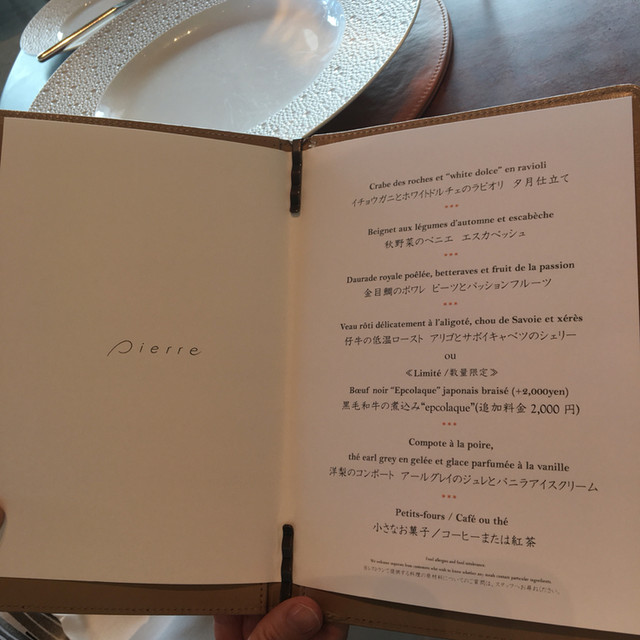 Pierre
Crabe des roches et "white dolce" en ravioli
イチョウガニとホワイトドルチェのラビオリ 夕月仕立て
***
Beignet aux légumes d'automne et escabèche
秋野菜のベニエ エスカベッシュ
***
Daurade royale poêlée, betteraves et fruit de la passion
金目鯛のポワレ ビーツとパッションフルーツ
***
Veau rôti délicatement à l'aligoté, chou de Savoie et xérès
仔牛の低温ロースト アリゴとサボイキャベツのシェリー
ou
≪Limité /数量限定≫
Bœuf noir "Epcolaque" japonais braisé (+2,000yen)
黒毛和牛の煮込み"epcolaque"(追加料金 2,000 円)
***
Compote à la poire,
thé earl grey en gelée et glace parfumée à la vanille
洋梨のコンポート アールグレイのジュレとバニラアイスクリーム
***
Petits-fours / Café ou thé
小さなお菓子/コーヒーまたは紅茶
Food allergies and food intolerances
We welcome enquiries from customers who wish to know whether any meals contain particular ingredients.